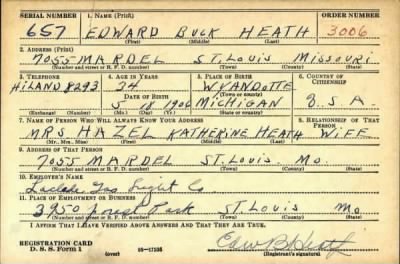 SERIAL NUMBER 1. NAME (Print) ORDER NUMBER
657 EDWARD BUCK HEATH 3006
(First) (Middle) (Last)
2. ADDRESS (Print)
7055 MARDEL ST. LOUIS MISSOURI
(Number and street or R. F. D. number) (Town) (County) (State)
3. TELEPHONE 4. AGE IN YEARS 5. PLACE OF BIRTH 6. COUNTRY OF CITIZENSHIP
HILAND 8293 34 WYANDOTTE
DATE OF BIRTH (Town or county)
5 18 1906 MICHIGAN U.S.A.
(Exchange) (Number) (Mo.) (Day) (Yr.) (State or country)
7. NAME OF PERSON WHO WILL ALWAYS KNOW YOUR ADDRESS 8. RELATIONSHIP OF THAT PERSON
MRS HAZEL KATHERINE HEATH WIFE
(Mr., Mrs., Miss) (First) (Middle) (Last)
9. ADDRESS OF THAT PERSON
7055 MARDEL ST. LOUIS MO.
(Number and street or R. F. D. number) (Town) (County) (State)
10. EMPLOYER'S NAME
Laclede Gas Light Co
11. PLACE OF EMPLOYMENT OR BUSINESS
3950 Forest Park ST. LOUIS Mo
(Number and street or R. F. D. number) (Town) (County) (State)
I AFFIRM THAT I HAVE VERIFIED ABOVE ANSWERS AND THAT THEY ARE TRUE.
REGISTRATION CARD
D. S. S. Form 1 (over) 16-17105 (Registrant's signature)